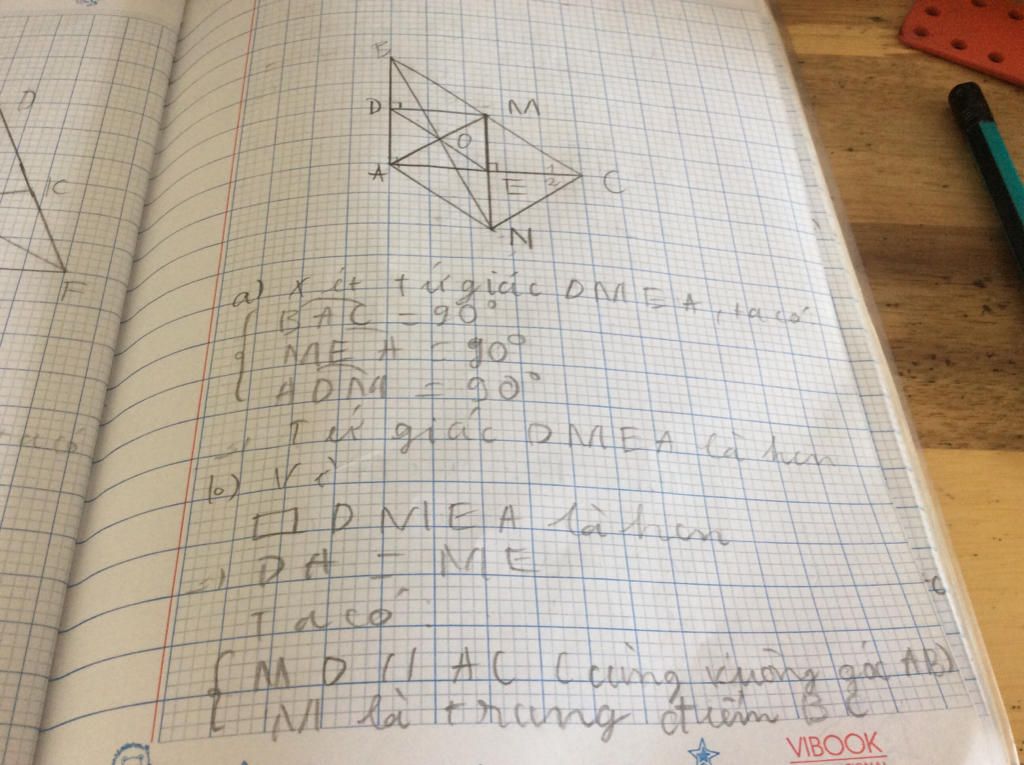 D
C
F
B
D
M
O
A
E
1
2
C
N
a) Xét tứ giác DMEA, ta có
BAC = 90°
MEA = 90°
ADM = 90°
=> Tứ giác DMEA là hcn
b) Vì
□ DMEA là hcn
=> DA = ME
Ta có:
MD // AC (cùng vuông góc AB)
M là trung điểm BC
VIBOOK